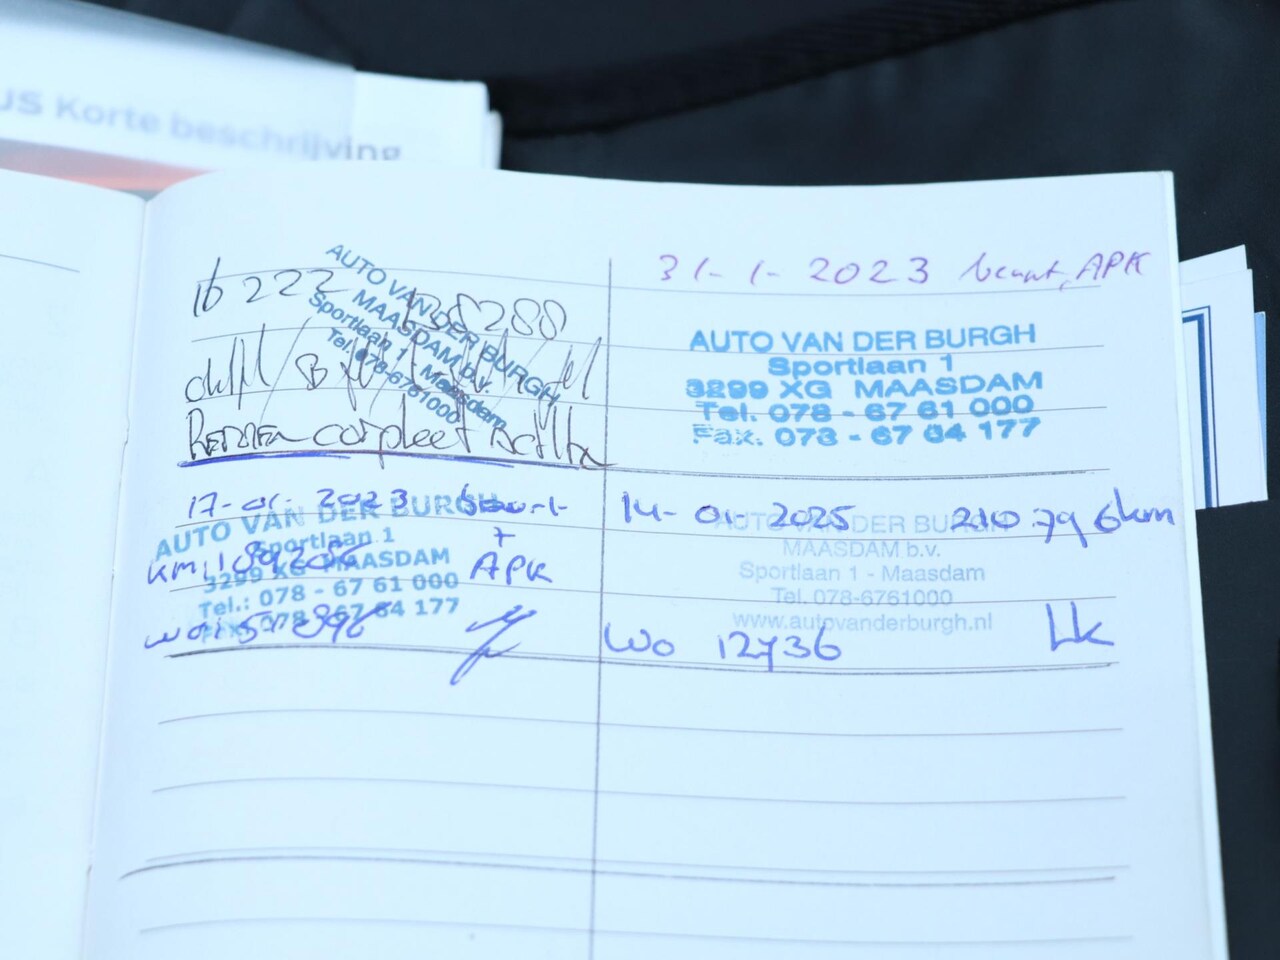 US Korte beschrijving
16 222 138288
AUTO VAN DER BURGH
MAASDAM b.v.
Sportlaan 1 - Maasdam
Tel. 078-6761000
compleet
31-1-2023 beurt, APK
AUTO VAN DER BURGH
Sportlaan 1
3299 XG MAASDAM
Tel. 078 - 67 61 000
Fax. 078 - 67 64 177
17-01-2023 beurt
+
APK
AUTO VAN DER BURGH
Sportlaan 1
3299 XG MAASDAM
Tel.: 078 - 67 61 000
078 - 67 64 177
km: 189286
14-01-2025 210796km
AUTO VAN DER BURGH
MAASDAM b.v.
Sportlaan 1 - Maasdam
Tel. 078-6761000
www.autovanderburgh.nl
Wo 12736 Lk